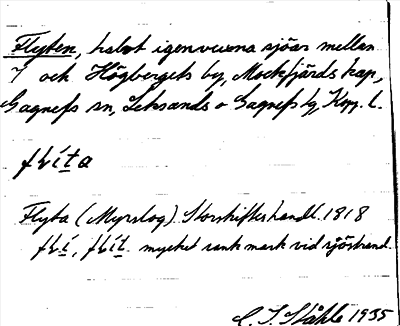 Flyten, halvt igenvuxna sjöar mellan
7 och Högbergets by, Mockfjärds kap.,
Gagnefs sn, Leksands o Gagnefs tg, Kopp. l.
Flyta (Myrslog) Storskifteshandl. 1818
mycket sank mark vid sjöstrand.
C. I. Ståhle 1935